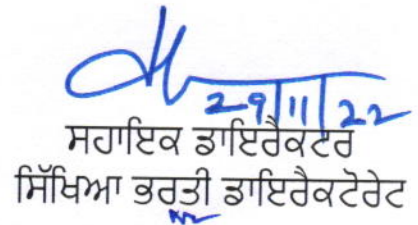 29/11/22
ਸਹਾਇਕ ਡਾਇਰੈਕਟਰ
ਸਿੱਖਿਆ ਭਰਤੀ ਡਾਇਰੈਕਟੋਰੇਟ